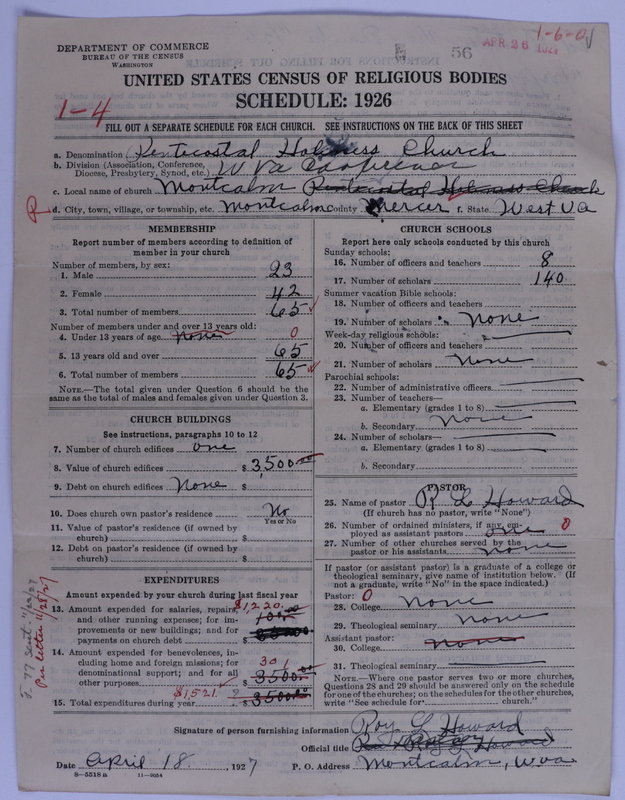 1-6-0
56
APR 26
DEPARTMENT OF COMMERCE
BUREAU OF THE CENSUS
WASHINGTON
UNITED STATES CENSUS OF RELIGIOUS BODIES
SCHEDULE: 1926
1-4
FILL OUT A SEPARATE SCHEDULE FOR EACH CHURCH. SEE INSTRUCTIONS ON THE BACK OF THIS SHEET
a. Denomination Pentecostal Holiness Church
b. Division (Association, Conference, Diocese, Presbytery, Synod, etc.) W Va
c. Local name of church Montcalm Pentecostal Holiness Church
d. City, town, village, or township, etc. Montcalm County Mercer f. State West Va
MEMBERSHIP
Report number of members according to definition of
member in your church
Number of members, by sex:
1. Male 23
2. Female 42
3. Total number of members 65
Number of members under and over 13 years old:
4. Under 13 years of age none 0
5. 13 years old and over 65
6. Total number of members 65
NOTE.—The total given under Question 6 should be
the same as the total of males and females given under Question 3.
CHURCH BUILDINGS
See instructions, paragraphs 10 to 12
7. Number of church edifices one
8. Value of church edifices $ 3,500.00
9. Debt on church edifices None $
10. Does church own pastor's residence No
Yes or No
11. Value of pastor's residence (if owned by
church) $
12. Debt on pastor's residence (if owned by
church) $
EXPENDITURES
Amount expended by your church during last fiscal year
13. Amount expended for salaries, repairs, $1,220.
and other running expenses; for im-
provements or new buildings; and for
payments on church debt $
14. Amount expended for benevolences, in-
cluding home and foreign missions; for 301
denominational support; and for all
other purposes $ 3500.00
$1,521.
15. Total expenditures during year $ 3500.00
Per letter 11/28/27
CHURCH SCHOOLS
Report here only schools conducted by this church
Sunday schools:
16. Number of officers and teachers 8
17. Number of scholars 140
Summer vacation Bible schools:
18. Number of officers and teachers
19. Number of scholars none
Week-day religious schools:
20. Number of officers and teachers
21. Number of scholars none
Parochial schools:
22. Number of administrative officers
23. Number of teachers—
a. Elementary (grades 1 to 8)
b. Secondary none
24. Number of scholars—
a. Elementary (grades 1 to 8)
b. Secondary
PASTOR
25. Name of pastor R L Howard
(If church has no pastor, write "None")
26. Number of ordained ministers, if any, em-
ployed as assistant pastors one 0
27. Number of other churches served by the
pastor or his assistants none
If pastor (or assistant pastor) is a graduate of a college or
theological seminary, give name of institution below. (If
not a graduate, write "No" in the space indicated.)
Pastor: 0
28. College none
29. Theological seminary none
Assistant pastor:
30. College none
31. Theological seminary
NOTE.—Where one pastor serves two or more churches,
Questions 28 and 29 should be answered only on the schedule
for one of the churches; on the schedules for the other churches,
write "See schedule for church."
Signature of person furnishing information Roy L Howard
Official title L Howard
Date April 18, 1927 P. O. Address Montcalm, W va
8—5518 a 11—9054